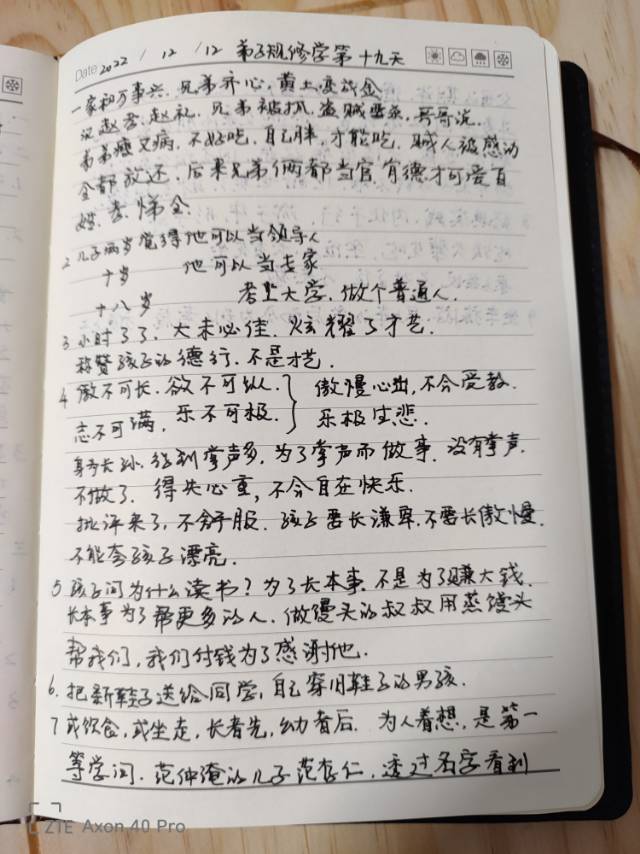 Date 2022 / 12 / 12 弟子规修学第十九天
一家和万事兴，兄弟齐心，黄土变成金
汉赵孝，赵礼，兄弟被抓，盗贼要杀，哥哥说，
弟弟瘦又病，不好吃，自己胖，才能吃，贼人被感动
全部放还，后来兄弟俩都当官，有德才可爱百
姓，孝，悌全。
2 儿子两岁觉得他可以当领导人
十岁 他可以当专家
十八岁 考上大学，做个普通人．
3 小时了了，大未必佳，炫耀了才艺．
称赞孩子的德行，不是才艺．
4 傲不可长，欲不可纵， 傲慢心出，不会受教．
志不可满，乐不可极． 乐极生悲．
得到掌声多，为了掌声而做事，没有掌声．
不做了，得失心重，不会自在快乐．
批评来了，不舒服．孩子要长谦卑，不要长傲慢．
不能夸孩子漂亮．
5 孩子问为什么读书？为了长本事，不是为了赚大钱．
长本事为了帮更多的人，做馒头的叔叔用蒸馒头
帮我们，我们付钱为了感谢他．
6. 把新鞋子送给同学，自己穿旧鞋子的男孩．
7 或饮食，或坐走，长者先，幼者后．为人着想，是第一
等学问．范仲淹的儿子范存仁，透过名字看到
ZTE Axon 40 Pro